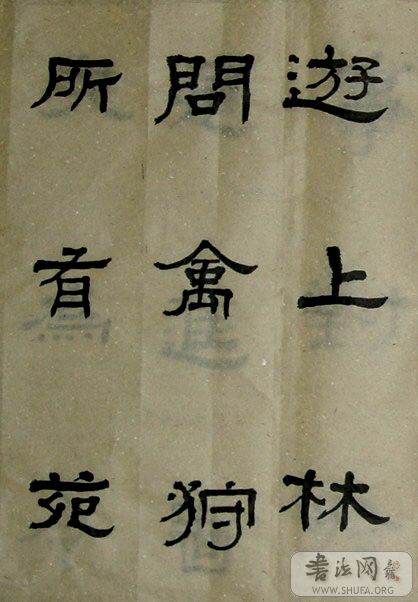 遊上林
問禽狩
所有苑
書法网
WWW.SHUFA.ORG